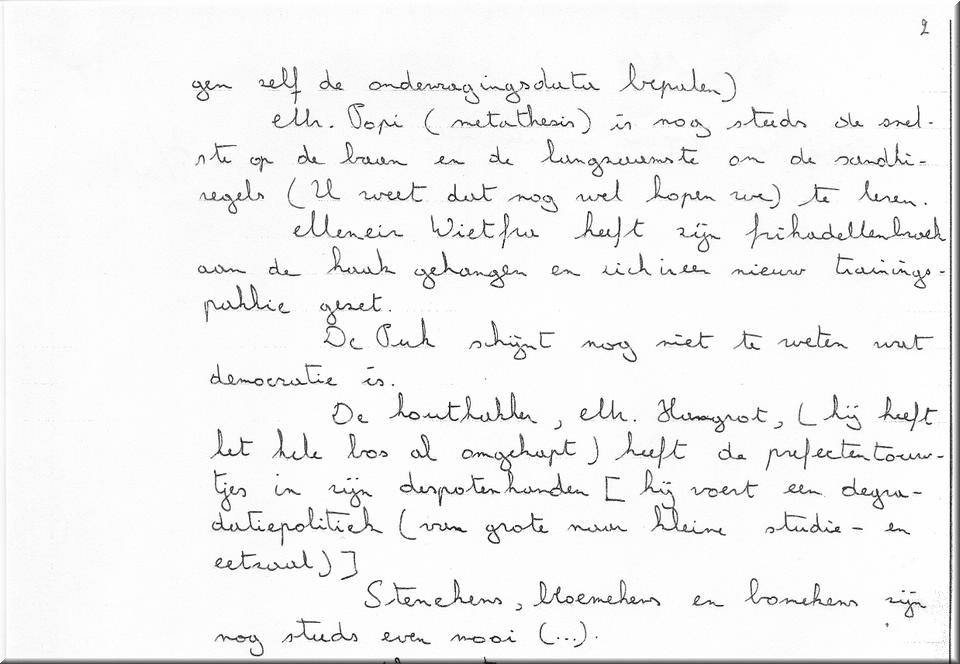 2
gen zelf de ondervragingsdata bepalen)
Mr. Popi (metathesis) is nog steeds de snel-
ste op de baan en de langzaamste om de sandhi-
regels (U weet dat nog wel hopen we) te leren.
Meneir Wietfra heeft zijn frikadellenbroek
aan de haak gehangen en zich in een nieuw trainings-
pakkie gezet.
De Puk schijnt nog niet te weten wat
democratie is.
De houthakker, Mr. Haegrot, (hij heeft
het hele bos al omgekapt) heeft de prefectentouw-
tjes in zijn despotenhanden [ hij voert een degra-
datiepolitiek (van grote naar kleine studie- en
eetzaal) ]
Stenekens, bloemekens en bomekens zijn
nog steeds even mooi (...).